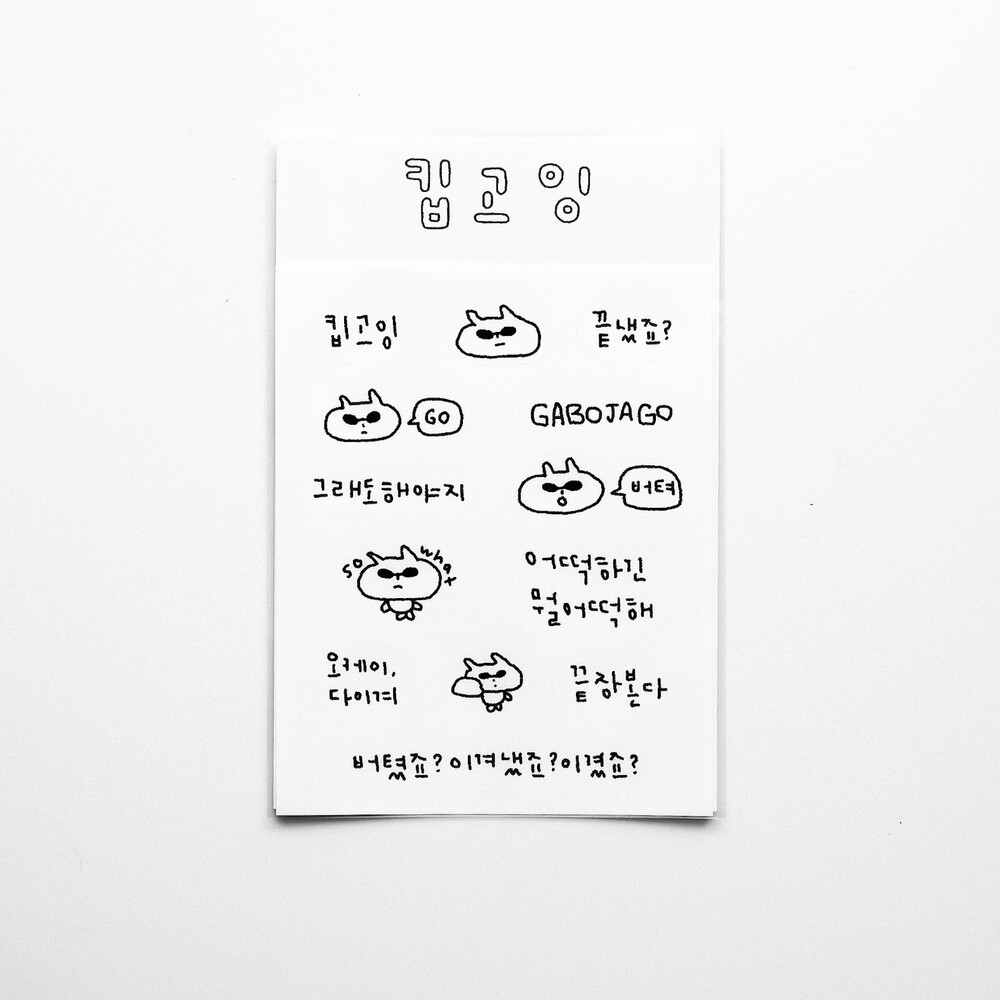 킵고잉
킵고잉
끝냈죠?
GO
GABOJAGO
그래도해야지
버텨
so what
어떡하긴
뭘어떡해
오케이,
다이겨
끝장본다
버텼죠?이겨냈죠?이겼죠?